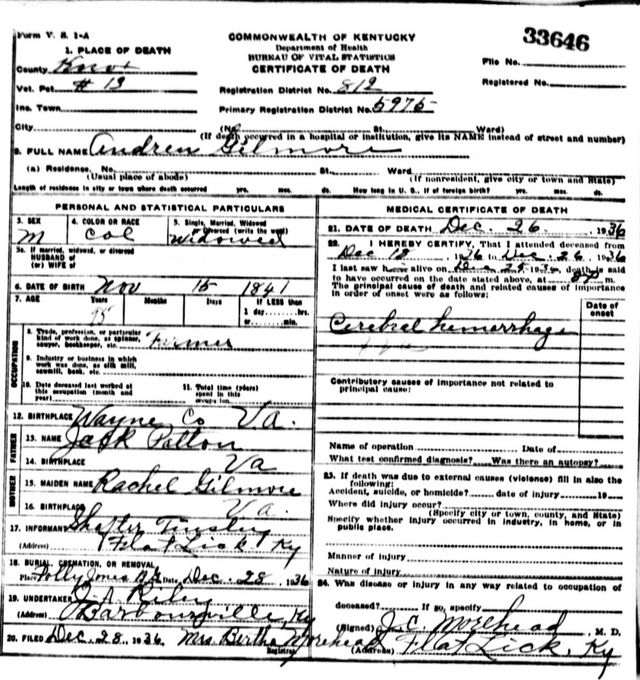 Form V. S. 1-A
COMMONWEALTH OF KENTUCKY
Department of Health
BUREAU OF VITAL STATISTICS
CERTIFICATE OF DEATH
33646
File No.
Registered No.
1. PLACE OF DEATH
County Knox
Vot. Pct. # 13
Inc. Town
City
Registration District No. 812
Primary Registration District No. 5975
(No. St. Ward)
(If death occurred in a hospital or institution, give its NAME instead of street and number)
2. FULL NAME Andrew Gilmore
(a) Residence. No. St. Ward
(Usual place of abode) (If nonresident, give city or town and State)
Length of residence in city or town where death occurred yrs. mos. ds. How long in U. S., if of foreign birth? yrs. mos. ds.
PERSONAL AND STATISTICAL PARTICULARS
3. SEX M
4. COLOR OR RACE Col
5. Single, Married, Widowed or Divorced (write the word) Widowed
5a. If married, widowed, or divorced
HUSBAND of
(or) WIFE of
6. DATE OF BIRTH Nov 15 1841
7. AGE Years Months Days If LESS than
95
1 day hrs.
or min.
OCCUPATION
8. Trade, profession, or particular kind of work done, as spinner, sawyer, bookkeeper, etc. Farmer
9. Industry or business in which work was done, as silk mill, sawmill, bank, etc.
10. Date deceased last worked at this occupation (month and year)
11. Total time (years) spent in this occupation
12. BIRTHPLACE Wayne Co Va.
FATHER
13. NAME Jack Patton
14. BIRTHPLACE Va
MOTHER
15. MAIDEN NAME Rachel Gilmore
16. BIRTHPLACE Va.
17. INFORMANT Tinsley
(Address) Flat Lick Ky
18. BURIAL, CREMATION, OR REMOVAL
Place Polly Jones Date Dec. 28, 1936
19. UNDERTAKER Riley
(Address) Barbourville, Ky
20. FILED Dec. 28, 1936 Mrs. Bertha Morehead
Registrar
MEDICAL CERTIFICATE OF DEATH
21. DATE OF DEATH Dec. 26, 1936
22. I HEREBY CERTIFY, That I attended deceased from
Dec 12, 1936 to Dec. 26, 1936
I last saw h alive on 1936, death is said
to have occurred on the date stated above, at m.
The principal cause of death and related causes of importance
in order of onset were as follows:
Date of onset
Cerebral hemorrhage
Contributory causes of importance not related to
principal cause:
Name of operation Date of
What test confirmed diagnosis? Was there an autopsy?
23. If death was due to external causes (violence) fill in also the
following:
Accident, suicide, or homicide? date of injury 19
Where did injury occur?
(Specify city or town, county, and State)
Specify whether injury occurred in industry, in home, or in
public place.
Manner of injury
Nature of injury
24. Was disease or injury in any way related to occupation of
deceased? If so, specify
(Signed) J. C. Morehead, M. D.
(Address) Flat Lick, Ky